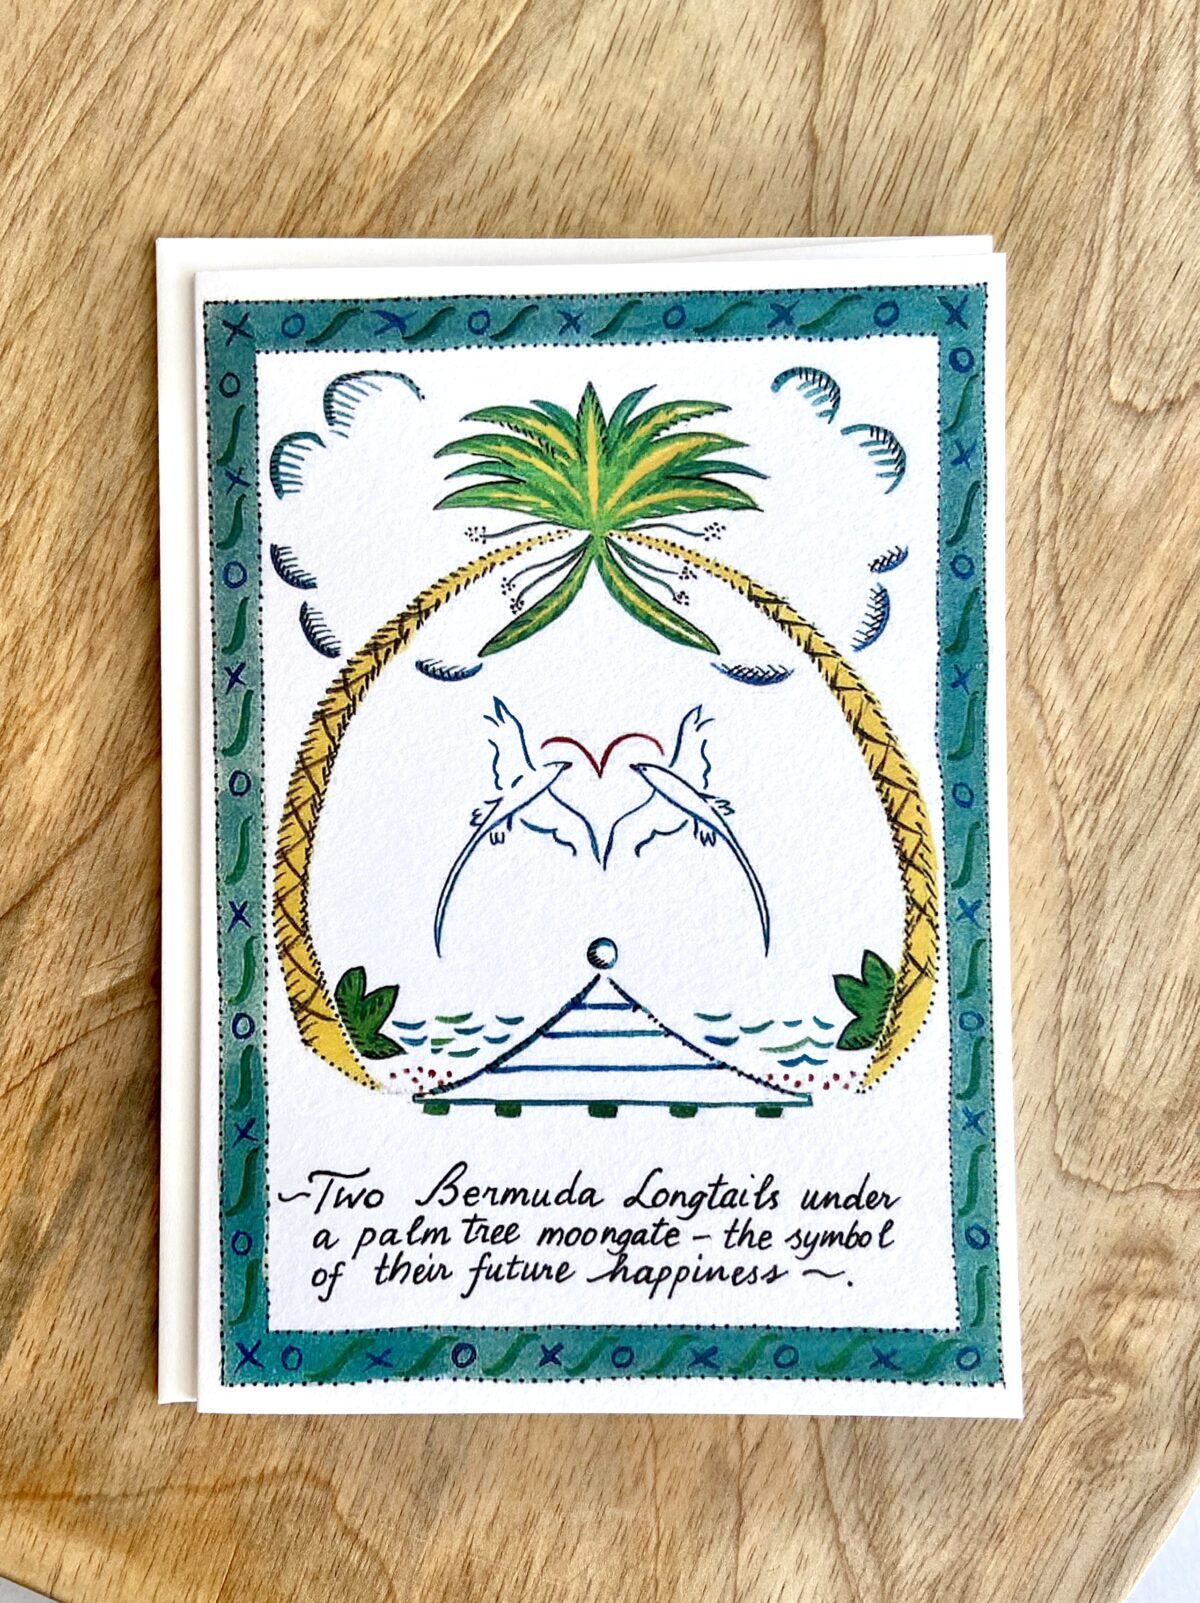 ~Two Bermuda Longtails under
a palm tree moongate – the symbol
of their future happiness ~.